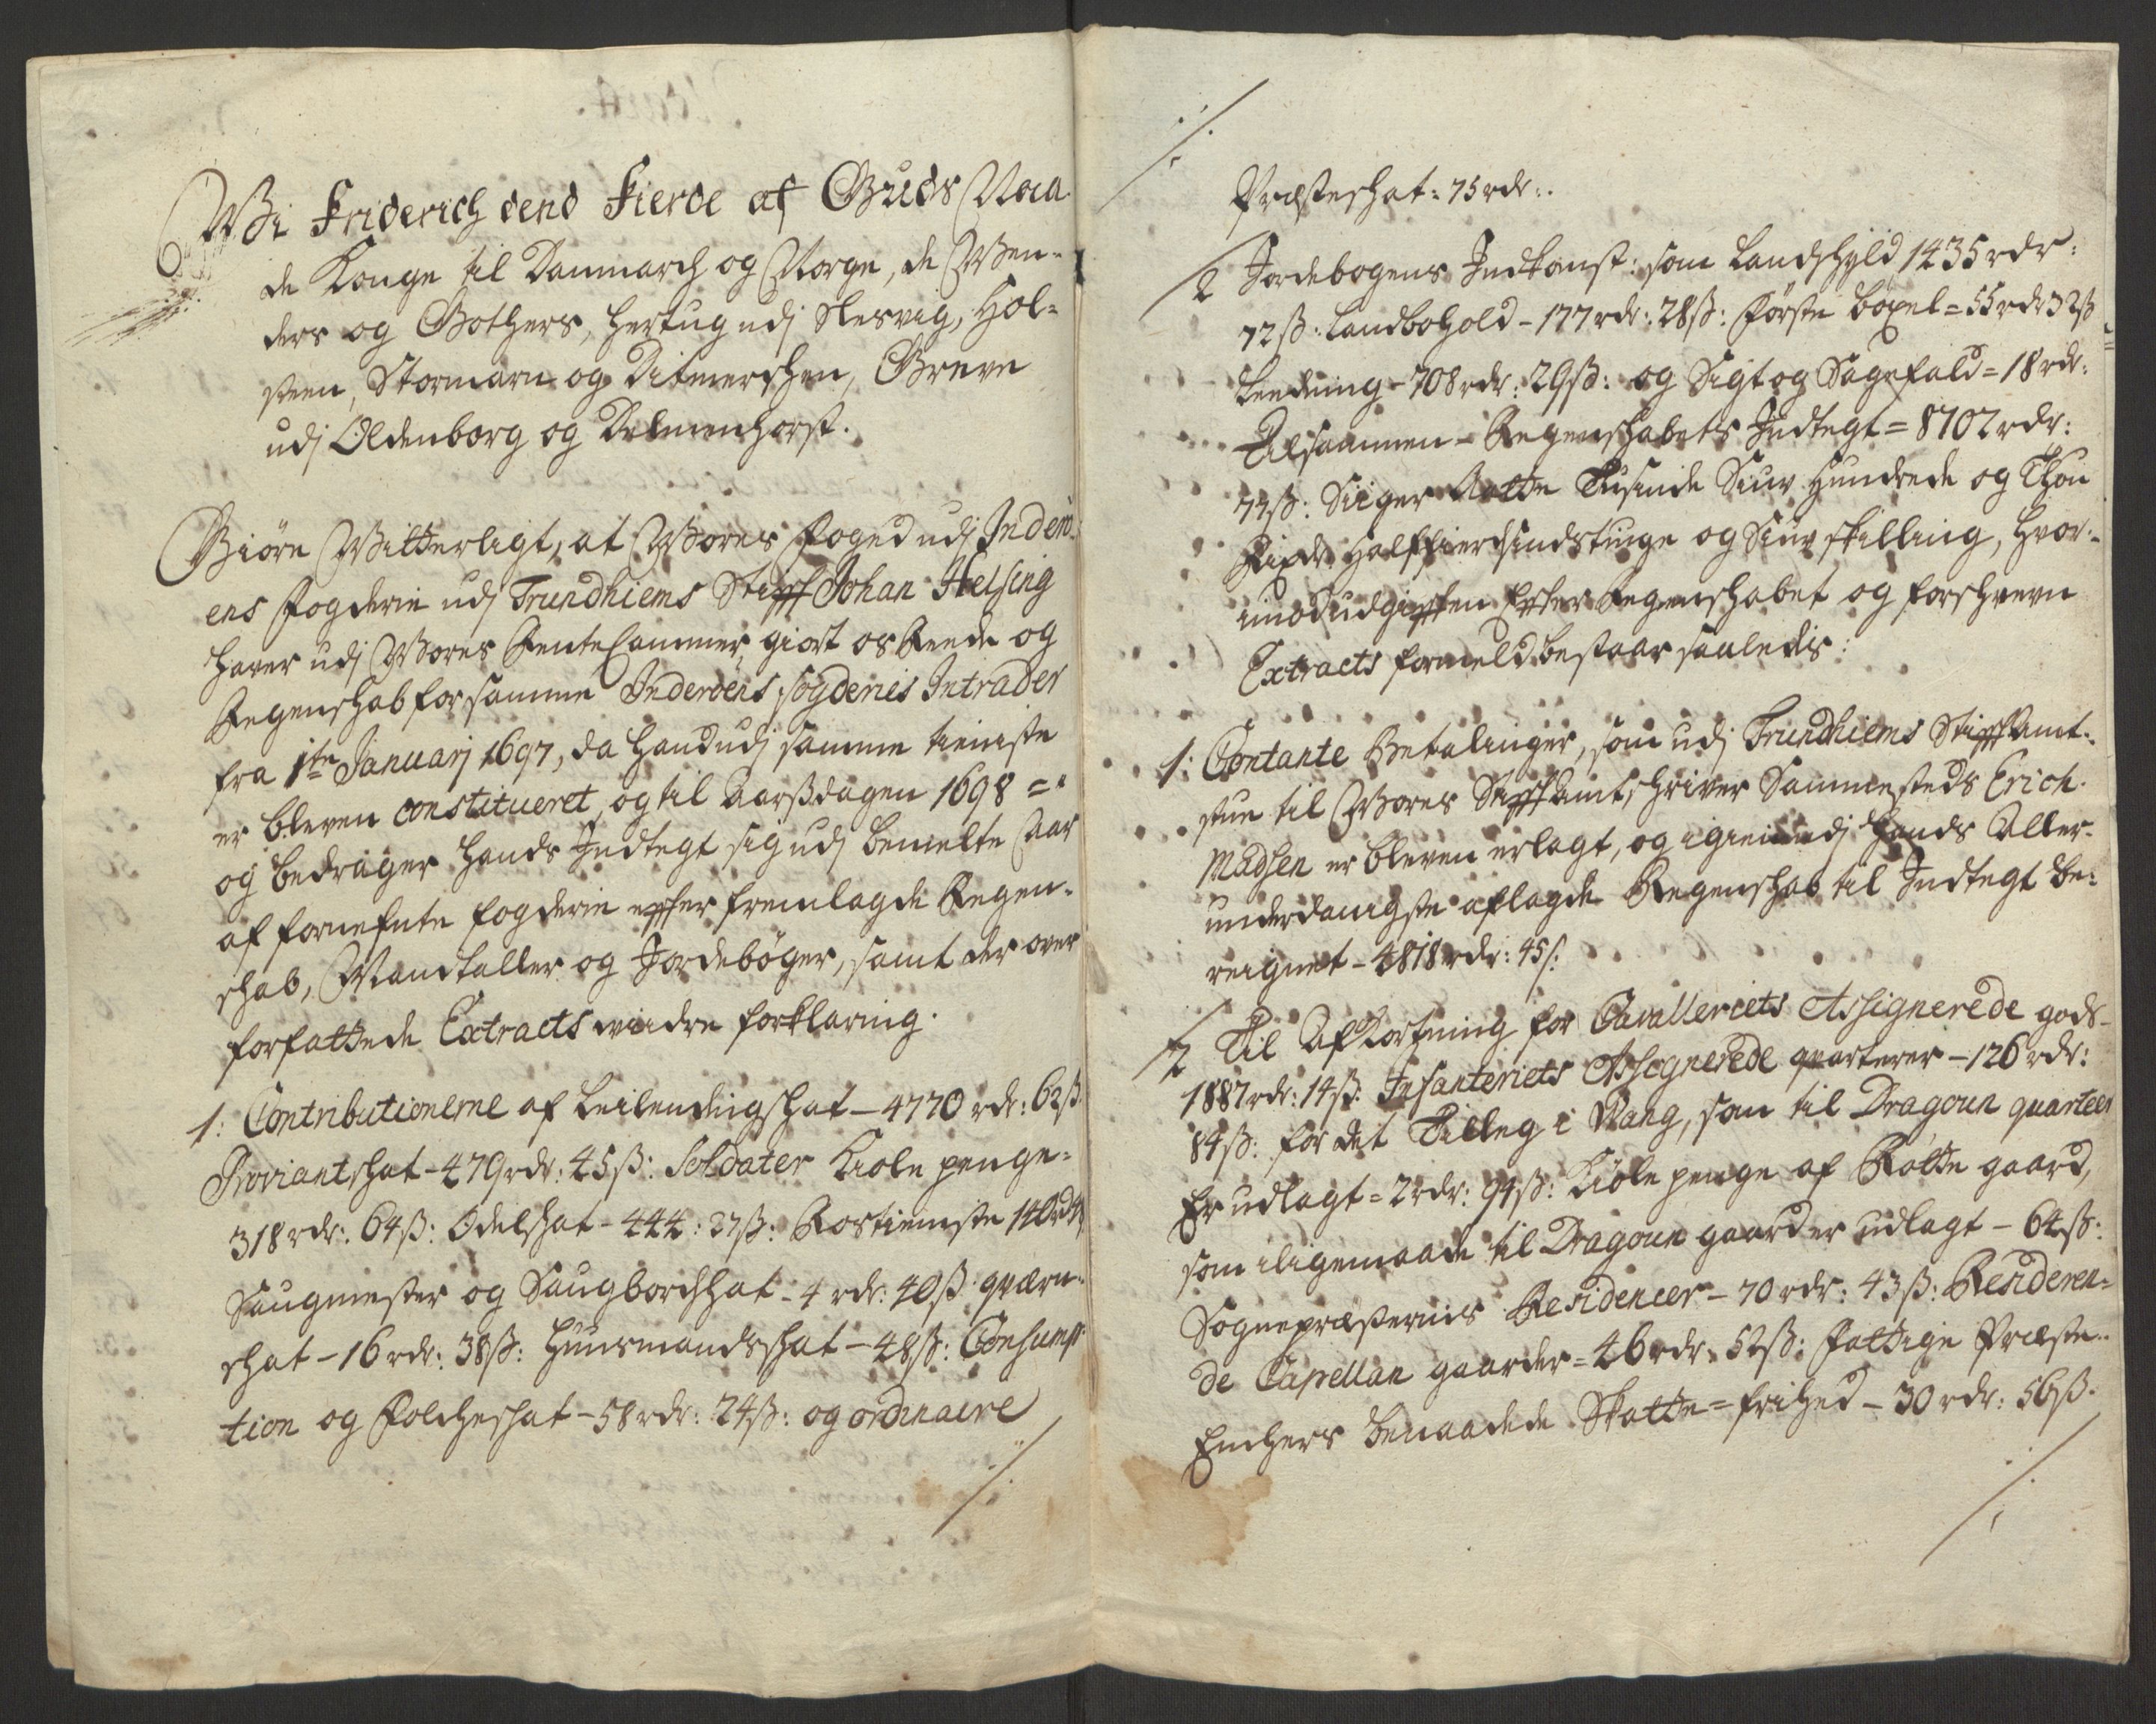 Wi Friderich dend Fierde af Guds Naa
de Konge til Danmarch og Norge, de Wen-
ders og Gothers, Hertug udj Slesvig, Hol-
steen, Stormarn og Ditmerschen, Greve
udj Oldenborg og Delmenhorst.
Giöre Witterligt, at Wores foged udj Inderö
ens fogderie udj Trundhiems Stifft Johan Helsing
hawer udj Wores RenteCammer giort os Reede og
Regenschab for samme Inderöens fogderies Intrader
fra 1te Januarj 1697, da hand udj samme tieniste
er bleven constitueret, og til Aarsdagen 1698 =
og bedrager hands Indtegt sig udj bemelte Aar
af fornefnte fogderie effter fremlagde Regen-
schab, Mandtaller og Jordebøger, samt der over
forfattede Extracts widre forklaring.
1: Contributionerne af Leilendingschat - 4770 rdr: 62ß
Proviantschat - 479 rdr: 45ß: Soldater Kiole penge =
318 rdr: 64ß: Odelschat - 444: 27ß: Rostieniste 140 rdr
Saugmester og Saugbordschat - 4 rdr: 40ß qværn-
schat - 16 rdr: 38ß: Huusmandsschat - 48ß: Consump-
tion og Folcheschat - 58 rdr: 24ß: og ordinaire
./.
./.
Præsteschat: 75 rdr:.
2 Jordebogens Indkomst: som Landschyld 1435 rdr:
72ß: Landbohold - 177 rdr: 28ß: Förste böxel = 55 rdr 32ß
Leeding - 708 rdr: 29ß: og Sigt og Sagefald = 18 rdr:
Tilsammen - Regenschabets Indtegt = 8702 rdr:
77ß: Siiger Aatte Tusinde Siuv Hundrede og Thou
Rixdr halffierdsindstiuge og Siuv skilling, hvor-
imod udgifften Effter Regenschabet og forschrevne
Extracts formeld bestaar saaledis:
1: Contante Betalinger, som udj Trundhiems StifftAmt-
stue til Wores StifftAmtschriver Sammesteds Erich
Madsen er bleven erlagt, og igien udj hands Aller-
underdanigste aflagde Regenschab til Indtegt be-
reignet - 4818 rdr: 45ß
2 Til Afkortning for Cavalleriets Assignerede gods -
1887 rdr: 14ß: Infanteriets Assignerede quarterer - 126 rdr:
84ß: for det Tilleg i Wang, som til Dragoun quarteer
Er udlagt = 2 rdr: 94ß: Kiole penge af Rotte gaard,
som iligemaade til Dragoun gaard er udlagt - 64ß:
Sognepræsternis Residencer - 70 rdr: 43ß: Resideren-
de Capellan gaarder = 46 rdr: 52ß: Fattige Præste-
Encher benaadede Skatte = frihed - 30 rdr: 56ß.
./.